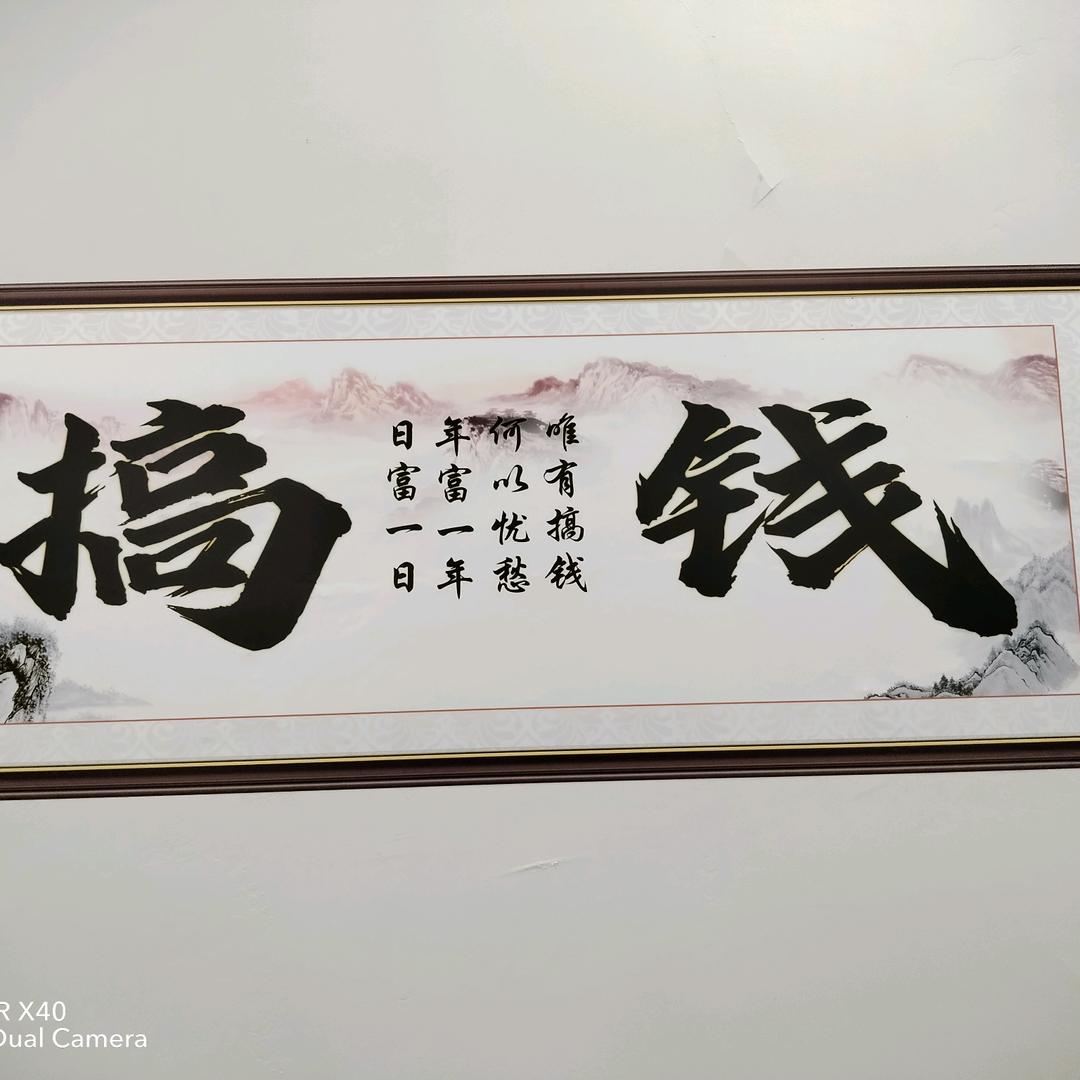 搞钱
何以忧愁
唯有搞钱
年富一年
日富一日
R X40
Dual Camera